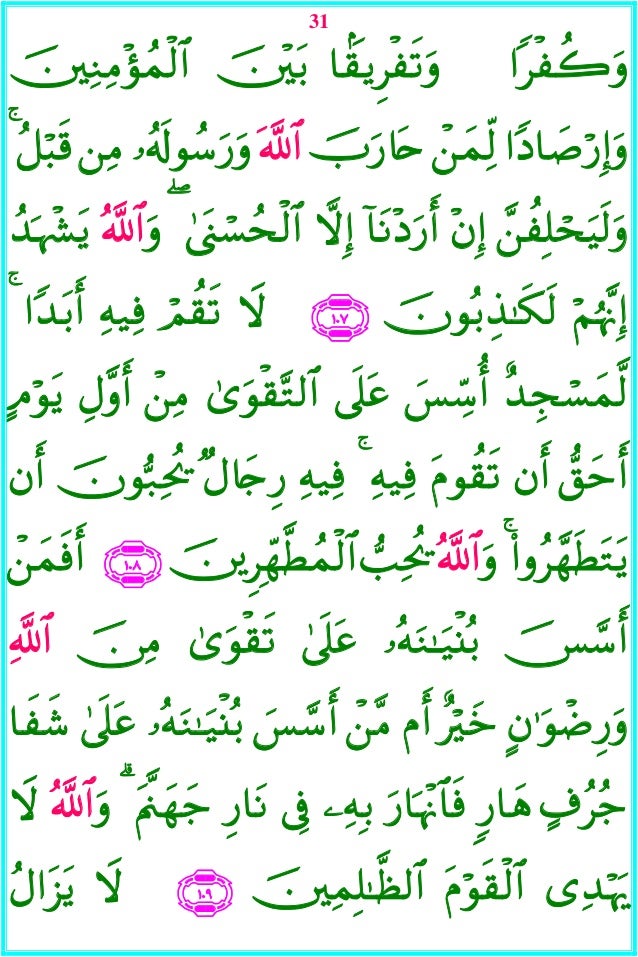 31
وَكُفْرًا وَتَفْرِيقًۢا بَيْنَ ٱلْمُؤْمِنِينَ
وَإِرْصَادًا لِّمَنْ حَارَبَ ٱللَّهَ وَرَسُولَهُۥ مِن قَبْلُ ۚ
وَلَيَحْلِفُنَّ إِنْ أَرَدْنَآ إِلَّا ٱلْحُسْنَىٰ ۖ وَٱللَّهُ يَشْهَدُ
إِنَّهُمْ لَكَـٰذِبُونَ ١٠٧ لَا تَقُمْ فِيهِ أَبَدًا ۚ
لَّمَسْجِدٌ أُسِّسَ عَلَى ٱلتَّقْوَىٰ مِنْ أَوَّلِ يَوْمٍ
أَحَقُّ أَن تَقُومَ فِيهِ ۚ فِيهِ رِجَالٌ يُحِبُّونَ أَن
يَتَطَهَّرُوا۟ ۚ وَٱللَّهُ يُحِبُّ ٱلْمُطَّهِّرِينَ ١٠٨ أَفَمَنْ
أَسَّسَ بُنْيَـٰنَهُۥ عَلَىٰ تَقْوَىٰ مِنَ ٱللَّهِ
وَرِضْوَٰنٍ خَيْرٌ أَم مَّنْ أَسَّسَ بُنْيَـٰنَهُۥ عَلَىٰ شَفَا
جُرُفٍ هَارٍ فَٱنْهَارَ بِهِۦ فِى نَارِ جَهَنَّمَ ۗ وَٱللَّهُ لَا
يَهْدِى ٱلْقَوْمَ ٱلظَّـٰلِمِينَ ١٠٩ لَا يَزَالُ